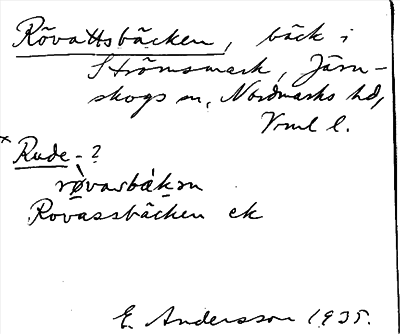 Rövattsbäcken, bäck i
Strömsmark, Järn-
skogs sn, Nordmarks hd,
Vrml l.
× Rude-?
rø̀varbákən
Rovassbäcken ek
E. Andersson 1935.